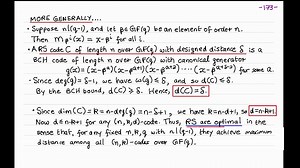 -173-
MORE GENERALLY...
• Suppose n|(q-1), and let β∈GF(q) be an element of order n.
Then m_{β^i}(x) = x-β^i for all i.
• A RS code C of length n over GF(q) with designed distance δ is a
BCH code of length n over GF(q) with canonical generator
g(x) = (x-β^a)(x-β^{a+1})(x-β^{a+2})···(x-β^{a+δ-2}) for some a.
• Since deg(g) = δ-1, we have w(g) ≤ δ, so d(C) ≤ δ.
By the BCH bound, d(C) ≥ δ. Hence, d(C) = δ.
• Since dim(C) = k = n-deg(g) = n-δ+1, we have k = n-d+1, so d=n-k+1
Now d≤n-k+1 for any (n,k,d)-code. Thus, RS are optimal in the
sense that, for any fixed n,k,q with n|(q-1), they achieve maximum
distance among all (n,k)-codes over GF(q).